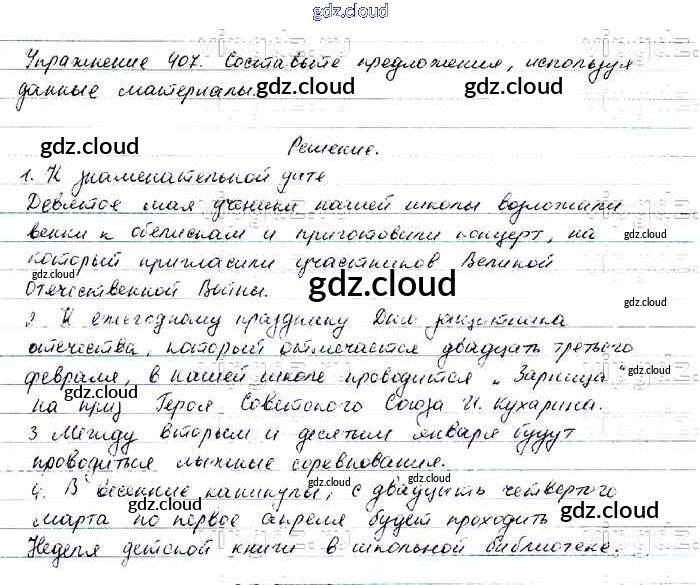 gdz.cloud
Упражнение 407. Составьте предложения, используя
данные материалы. gdz.cloud gdz.cloud
gdz.cloud Решение.
1. К знаменательной дате
Девятое мая ученики нашей школы возложили
венки к обелискам и приготовили концерт, на gdz.cloud
который пригласили участников Великой
gdz.cloud
Отечественной Войны. gdz.cloud
gdz.cloud
2. К ежегодному празднику Дня защитника
отечества, который отмечается двадцать третьего
февраля, в нашей школе проводится „Зарница“ gdz.cloud
на приз Героя Советского Союза И. Кухарина.
gdz.cloud
3 Между вторым и десятым января будут
проводиться лыжные соревнования.
gdz.cloud gdz.cloud
4. В весенние каникулы, с двадцать четвертого
марта по первое апреля будет проходить gdz.cloud
Неделя детской книги в школьной библиотеке.
gdz.cloud